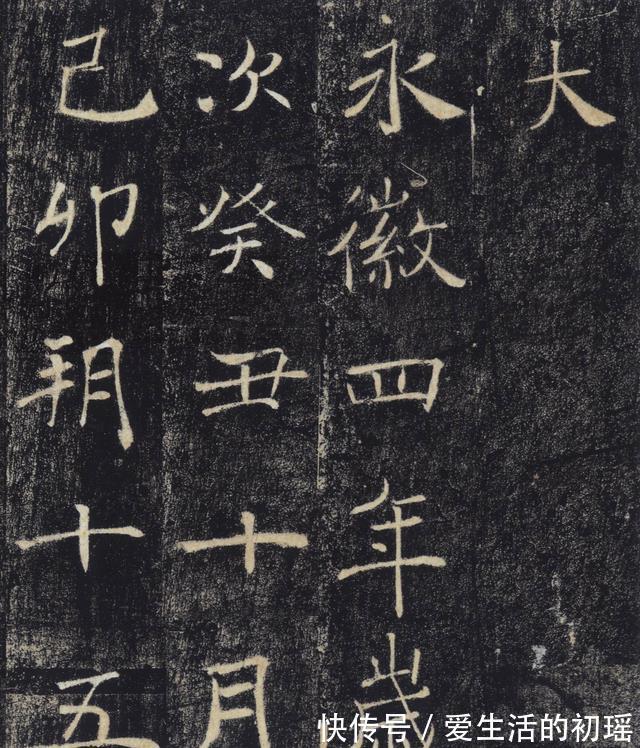 大
永徽四年歲
次癸丑十月
己卯朔十五
快传号/爱生活的初瑶